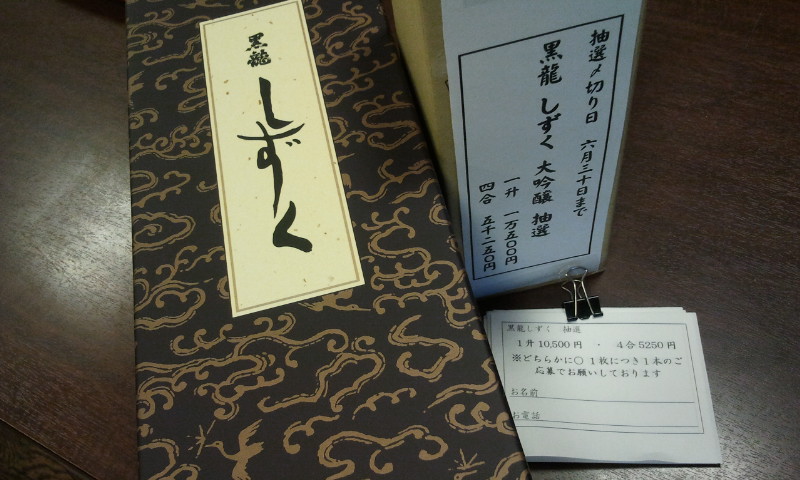 黒龍
しずく
抽選〆切り日 六月三十日まで
黒龍 しずく 大吟醸 抽選
一升 一万五〇〇円
四合 五千二五〇円
黒龍しずく 抽選
1升10,500円 ・ 4合5250円
※どちらかに〇 1枚につき1本のご
応募でお願いしております
お名前
お電話